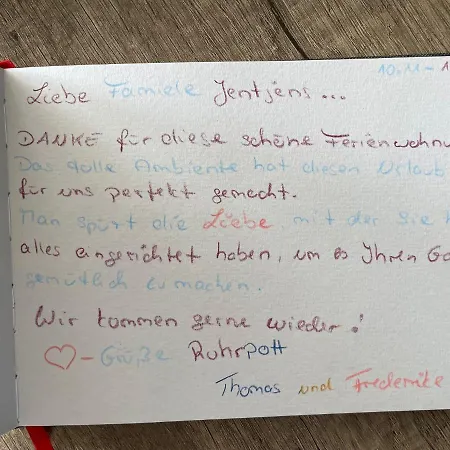 10.11 - 1
Liebe Famiele Jentjens...
DANKE für diese schöne Ferienwohnu
Das tolle Ambiente hat diesen Urlaub
für uns perfekt gemacht.
Man spürt die Liebe, mit der Sie h
alles eingerichtet haben, um es Ihren Gä
gemütlich zu machen.
Wir kommen gerne wieder!
♡-Grüße Ruhrpott
Thomas und Frederike